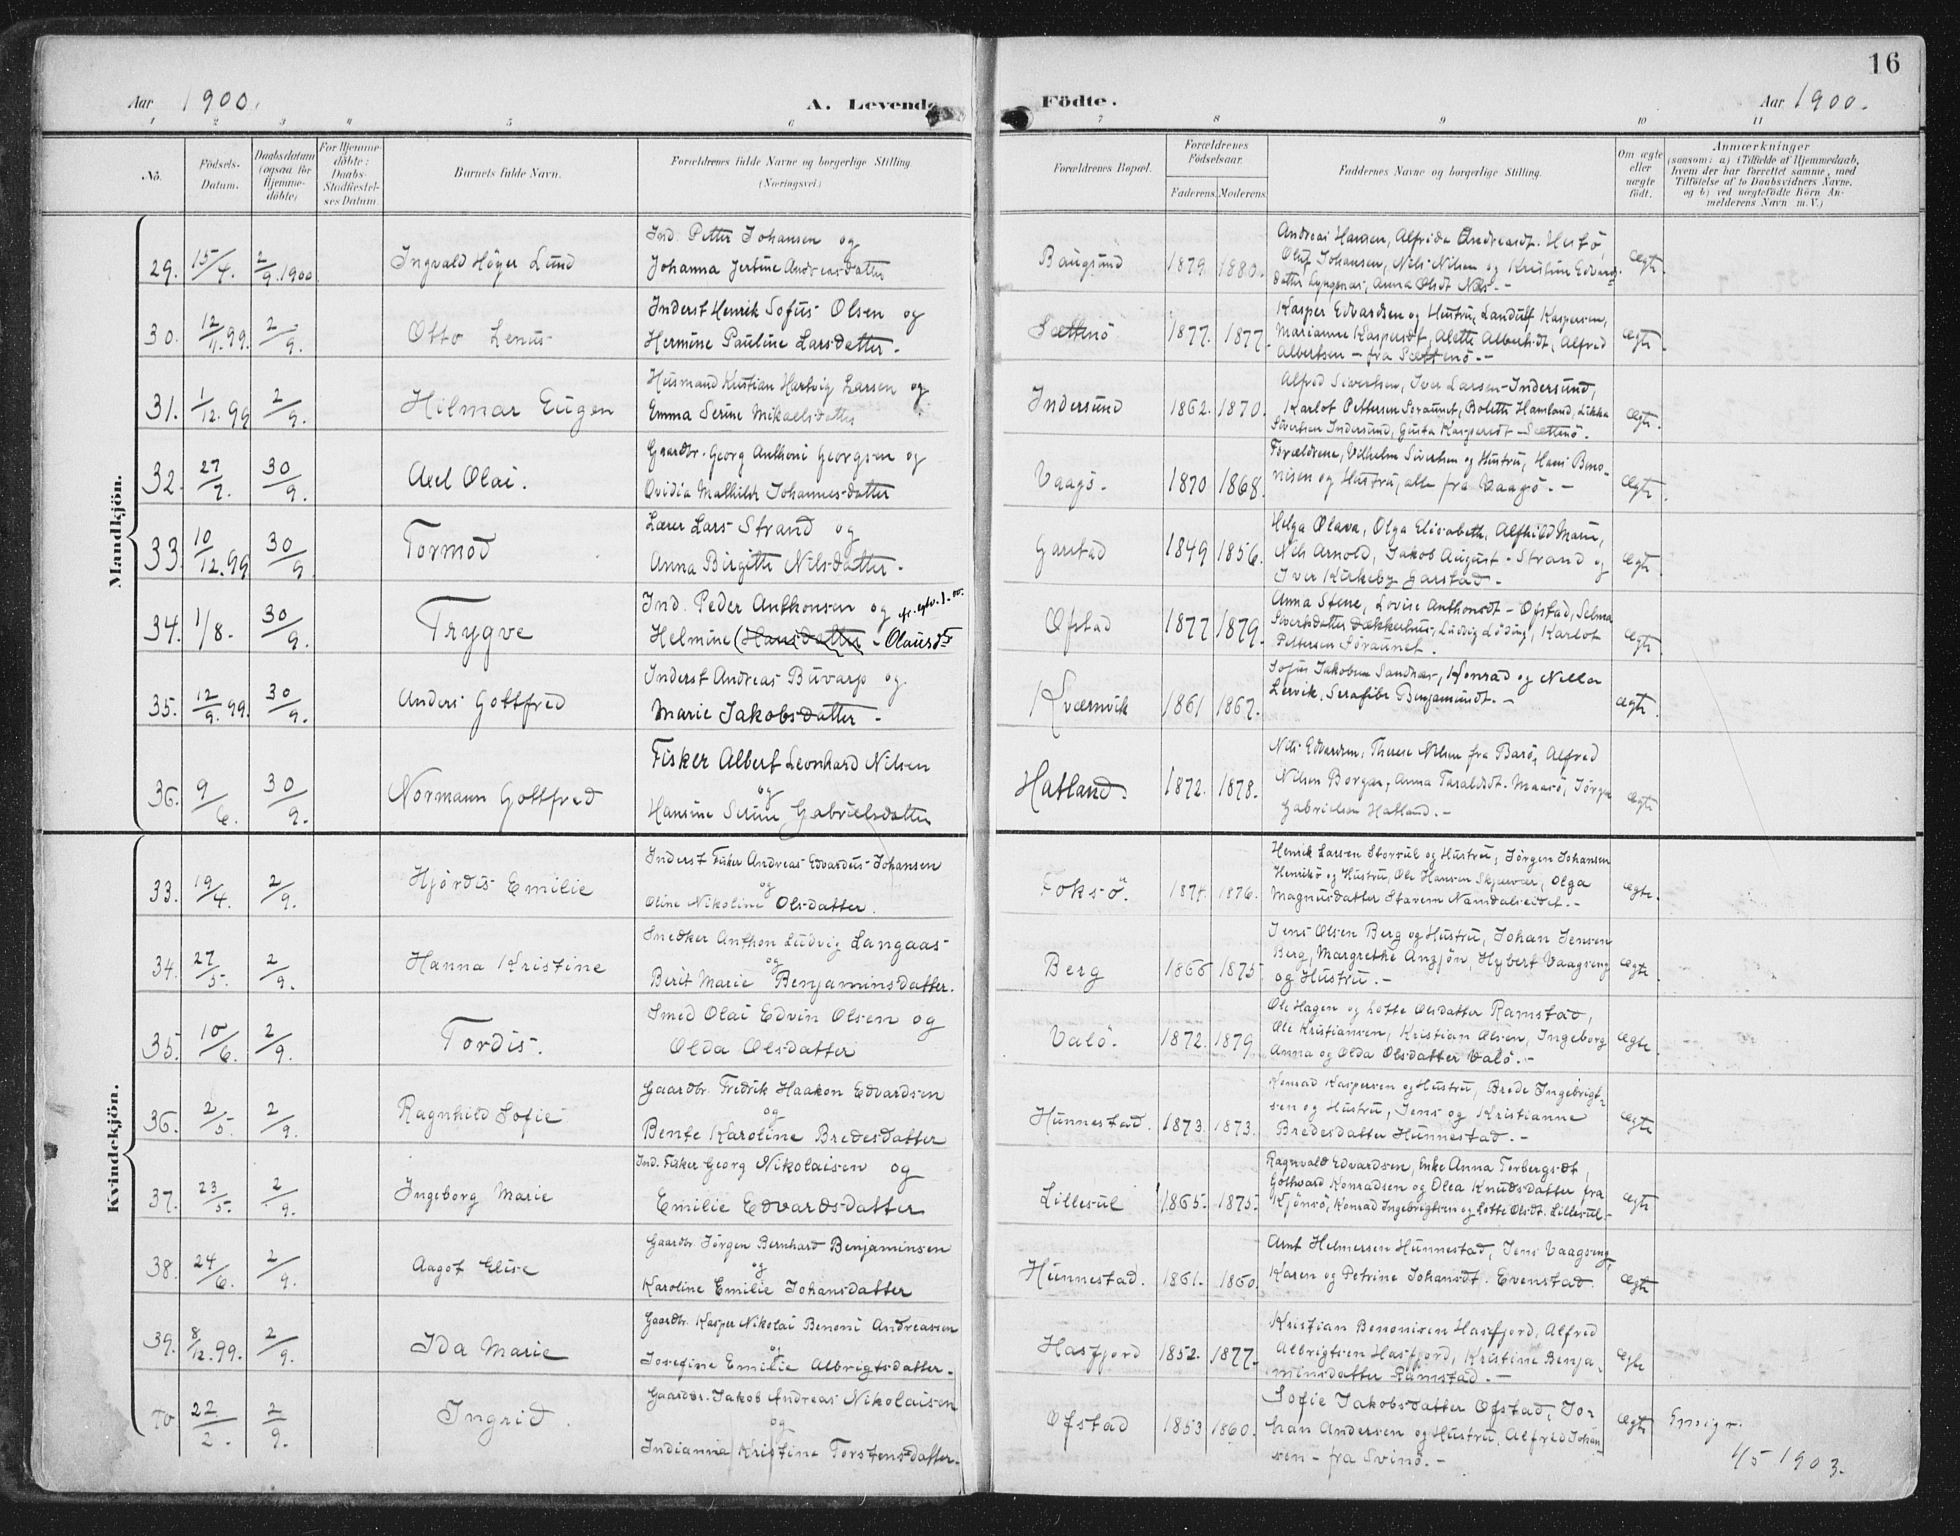 16
Aar 1900. A. Levende Födte. Aar 1900.
1 2 3 4 5 6 7 8 9 10 11
No. Födsels-Datum. Daabsdatum (ogsaa for Hjemme-döbte) For Hjemme-döbte: Daabs-Stadfæstel-ses Datum. Barnets fulde Navn. Forældrenes fulde Navne og borgerlige Stilling (Næringsvei) Forældrenes Bopæl. Forældrenes Födselsaar. Faderens Moderens Faddernes Navne og borgerlige Stilling. Om ægte eller uægte födt. Anmærkninger
(saasom: a) i Tilfælde af Hjemmedaab, hvem der har forrettet samme, med Tilföielse af to Daabsvidners Navne, og b) ved uægtefödte Börn An-melderens Navn m. V.)
Mandkjön.
29. 15/4. 2/9. 1900 Ingvald Höyer Lund
Ind. Petter Johansen og
Johanna Jertine Andreasdatter
Baugsund 1879 1880.
Andreas Hansen, Alfrida Andreasdt. Hestö,
Oluf Johansen, Nils Nilsen og Kristine Edvards-
datter Lyngsnes, Anna Olsdt Næs.-
ægte.
30. 12/11.99. 2/9. Otto Lenus
Inderst Henrik Sofus Olsen og
Hermine Pauline Larsdatter.
Sættenö 1877. 1877.
Kasper Edvardsen og Hustru, Landulf Kaspersen,
Marianne Kaspersdt, Alette Albertsdt, Alfred
Albertsen - fra Sættenö.-
ægte.
31. 1/12.99 2/9. Hilmar Eugen
Husmand Kristian Hartvig Larsen og
Emma Serine Mikaelsdatter
Indersund 1862. 1870.
Alfred Sivertsen, Iver Larsen-Indersund,
Karlot Pettersen Söraunet, Bolette Hamland, Likka
Sivertsen Indersund, Gusta Kaspersdt Sættenö.
ægte.
32. 27/7. 30/9. Axel Olai.
Gaardbr. Georg Anthoni Georgsen og
Ovidia Mathilde Johannesdatter
Vaagö. 1870 1868.
Forældrene, Vilhelm Sivertsen og Hustru, Hans Beno-
nisen og Hustru, alle fra Vaagö.-
ægte.
33. 10/12.99 30/9 Tormod
Lærer Lars Strand og
Anna Birgitte Nilsdatter.
Garstad 1849 1856.
Helga Olava, Olga Elisabeth, Alfhild Marie,
Nils Arnold, Jakob August - Strand og
Iver Kirkeby Garstad.
ægte.
34. 1/8. 30/9. Trygve
Ind. Peder Anthonsen og
Helmine (Hansdatter - Olausdt
Ofstad 1877 1879.
Anna Stene, Lovise Anthonsdt - Ofstad, Selma
Sivertsdatter Dækkerhus, Ludvig Löding, Karlot
Pettersen Söraunet.
ægte.
35. 12/9.99. 30/9. Anders Gottfred
Inderst Andreas Buvarp og
Marie Jakobsdatter.
Kværnvik 1861 1867.
Sofus Jakobsen Sandnes, Konrad og Nella
Lervik, Serafibe Benjaminsdt.-
ægte.
36. 9/6. 30/9. Normann Gottfred
Fisker Albert Leonhard Nilsen
og
Hansine Serine Gabrielsdatter
Hatland. 1872. 1878.
Nils Edvardsen, Therese Nilsen fra Barö, Alfred
Nilsen Borgan, Anna Taraldsdt. Maasö, Jörgen
Gabrielsen Hatland.-
ægte
Kvindekjön.
33. 19/4. 2/9. Hjördis Emilie
Inderst Fisker Andreas Edvardus Johansen
og
Oline Nikoline Olsdatter.
Foksö. 1874. 1876.
Henrik Larsen Storsul og Hustru, Jörgen Johansen
Henriksö og Hustru, Ole Hansen Skjærvær, Olga
Magnusdatter Stavem Namdalseidet.-
ægte.
34. 27/5. 2/9. Hanna Kristine
Snedker Anthon Ludvig Langaas
og
Berit Marie Benjaminsdatter.
Berg 1866 1875
Jens Olsen Berg og Hustru, Johan Jensen
Berg, Margrethe Anzjön, Hybert Vaagseng
og Hustru.-
ægte
35. 10/6. 2/9. Tordis.
Smed Olai Edvin Olsen og
Olda Olsdatter
Valö. 1872. 1879
Ole Hagen og Lotte Olsdatter Ramstad,
Ole Kristiansen, Kristian Olsen, Ingeborg
Anna og Olda Olsdatter Valö.-
ægte.
36. 2/5. 2/9. Ragnhild Sofie
Gaardbr. Fredrik Haakon Edvardsen
og
Bente Karoline Bredesdatter
Hunnestad. 1873. 1873.
Konrad Kaspersen og Hustru, Brede Ingebrigt-
sen og Hustru, Jens og Kristianne
Bredesdatter Hunnestad.-
ægte
37. 23/5. 2/9. Ingeborg Marie
Ind. Fisker Georg Nikolaisen og
Emilie Edvardsdatter
Lillesul 1865. 1875.
Ragnvald Edvardsen, Enke Anna Torbergsdt,
Gothvard Konradsen og Olea Knudsdatter fra
Kjönsö, Konrad Ingebrigtsen og Lotte Olsdt. Lillesul.
ægte
38. 24/6. 2/9. Aagot Elise
Gaardbr. Jörgen Bernhard Benjaminsen
og
Karoline Emilie Johansdatter
Hunnestad. 1861. 1860.
Arnt Helmersen Hunnestad, Jens Vaagseng,
Karen og Petrine Johansdt. Evenstad.
ægte
39. 8/12.99. 2/9. Ida Marie
Gaardbr. Kasper Nikolai Benoni Andreassen
og
Josefine Emilie Albrigtsdatter.
Hasfjord 1852. 1877.
Kristian Benonisen Hasfjord, Alfred
Albrigtsen Hasfjord, Kristine Benja-
minsdatter Ramstad.-
ægte
40 22/2. 2/9. Ingrid.
Gaardbr. Jakob Andreas Nikolaisen
og
Indianna Kristine Torstensdatter.
Ofstad 1853 1860.
Sofie Jakobsdatter Ofstad, Jo-
han Andersen og Hustru, Alfred Johan-
sen - fra Svinö.-
ægte Emigr.
4/5 1903.